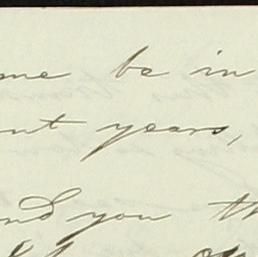 me be in
nt years,
nd you th